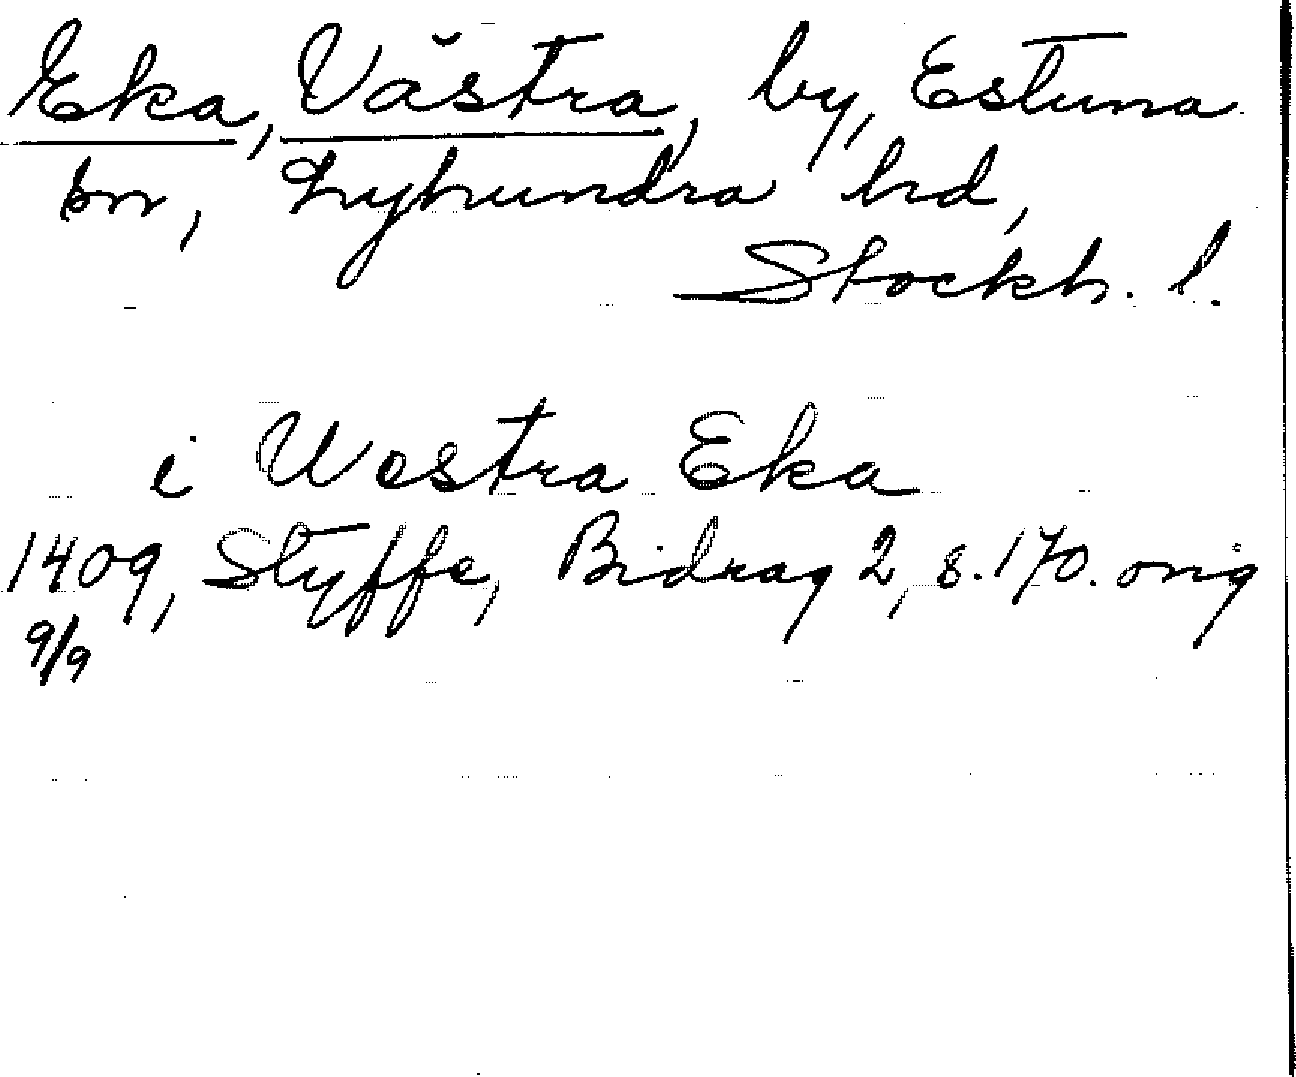 Eka, Västra, by, Estuna
sn, Lyhundra hd,
Stockh. l.
i Westra Eka
1409, Styffe, Bidrag 2, s. 170. orig
9/9